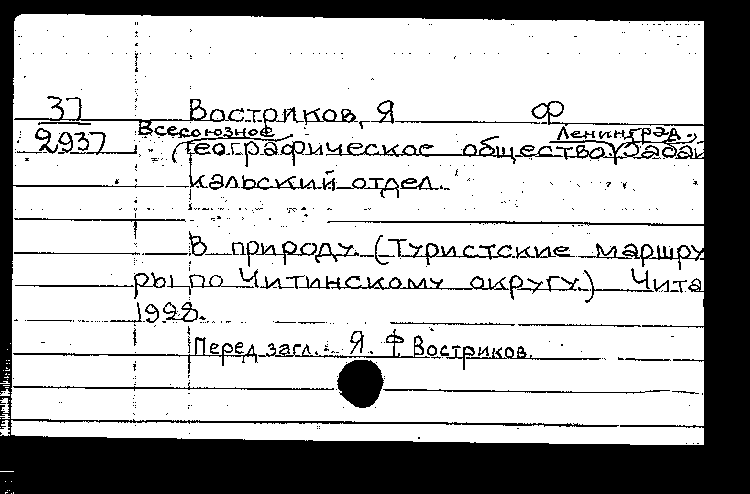 37 Востриков, Я Ф
2937 Всесоюзное Ленинград.,
Географическое общество. Забай
кальский отдел.
В природу. (Туристские маршру
ры по Читинскому округу.) Чита
1928.
Перед загл.: Я. Ф. Востриков.